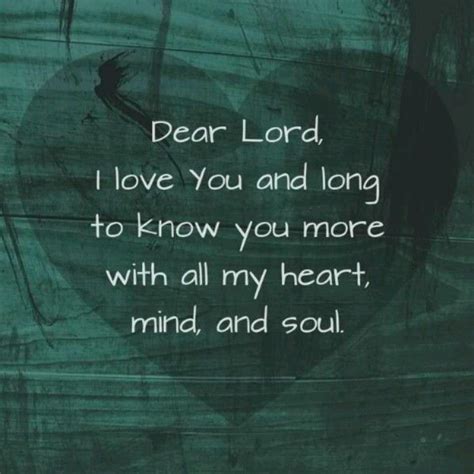 Dear Lord,
I love You and long
to know you more
with all my heart,
mind, and soul.